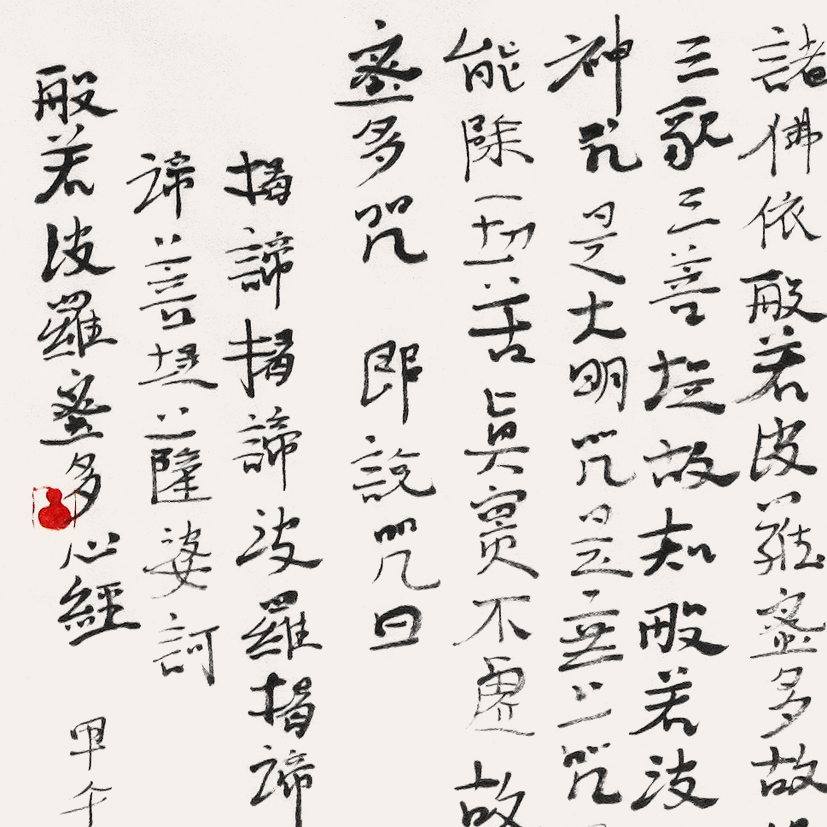 諸佛依般若波羅蜜多故
三藐三菩提故知般若波
神咒是大明咒是無上咒
能除一切苦眞實不虛故
蜜多咒 即說咒曰
揭諦揭諦波羅揭諦
諦菩提薩婆訶
般若波羅蜜多心經 甲午